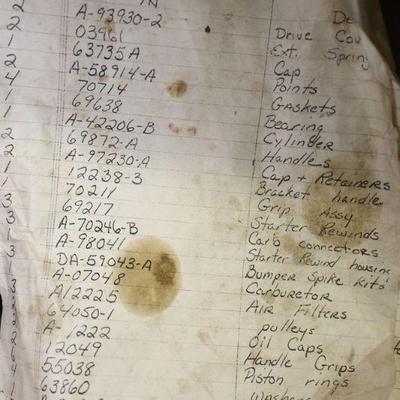 2 A-93930-2 Drive Cou
2 03961 Ext. Spring
1 63735A Cap
2 A-58914-A Points
4 70714 Gaskets
1 69638 Bearing
1 A-42206-B Cylinder
2 69872-A Handles
2 A-97230-A Cap + Retainers
1 12238-3 Bracket handle
1 70211 Grip Assy
3 69217 Starter Rewinds
3 A-70246-B Carb connectors
1 A-98041 Starter Rewind housing
3 DA-59043-A Bumper Spike Kits
A-07048 Carburetor
A12225 Air Filters
64050-1 pulleys
A-1222 Oil Caps
12049 Handle Grips
55038 Piston rings
63860 Washers